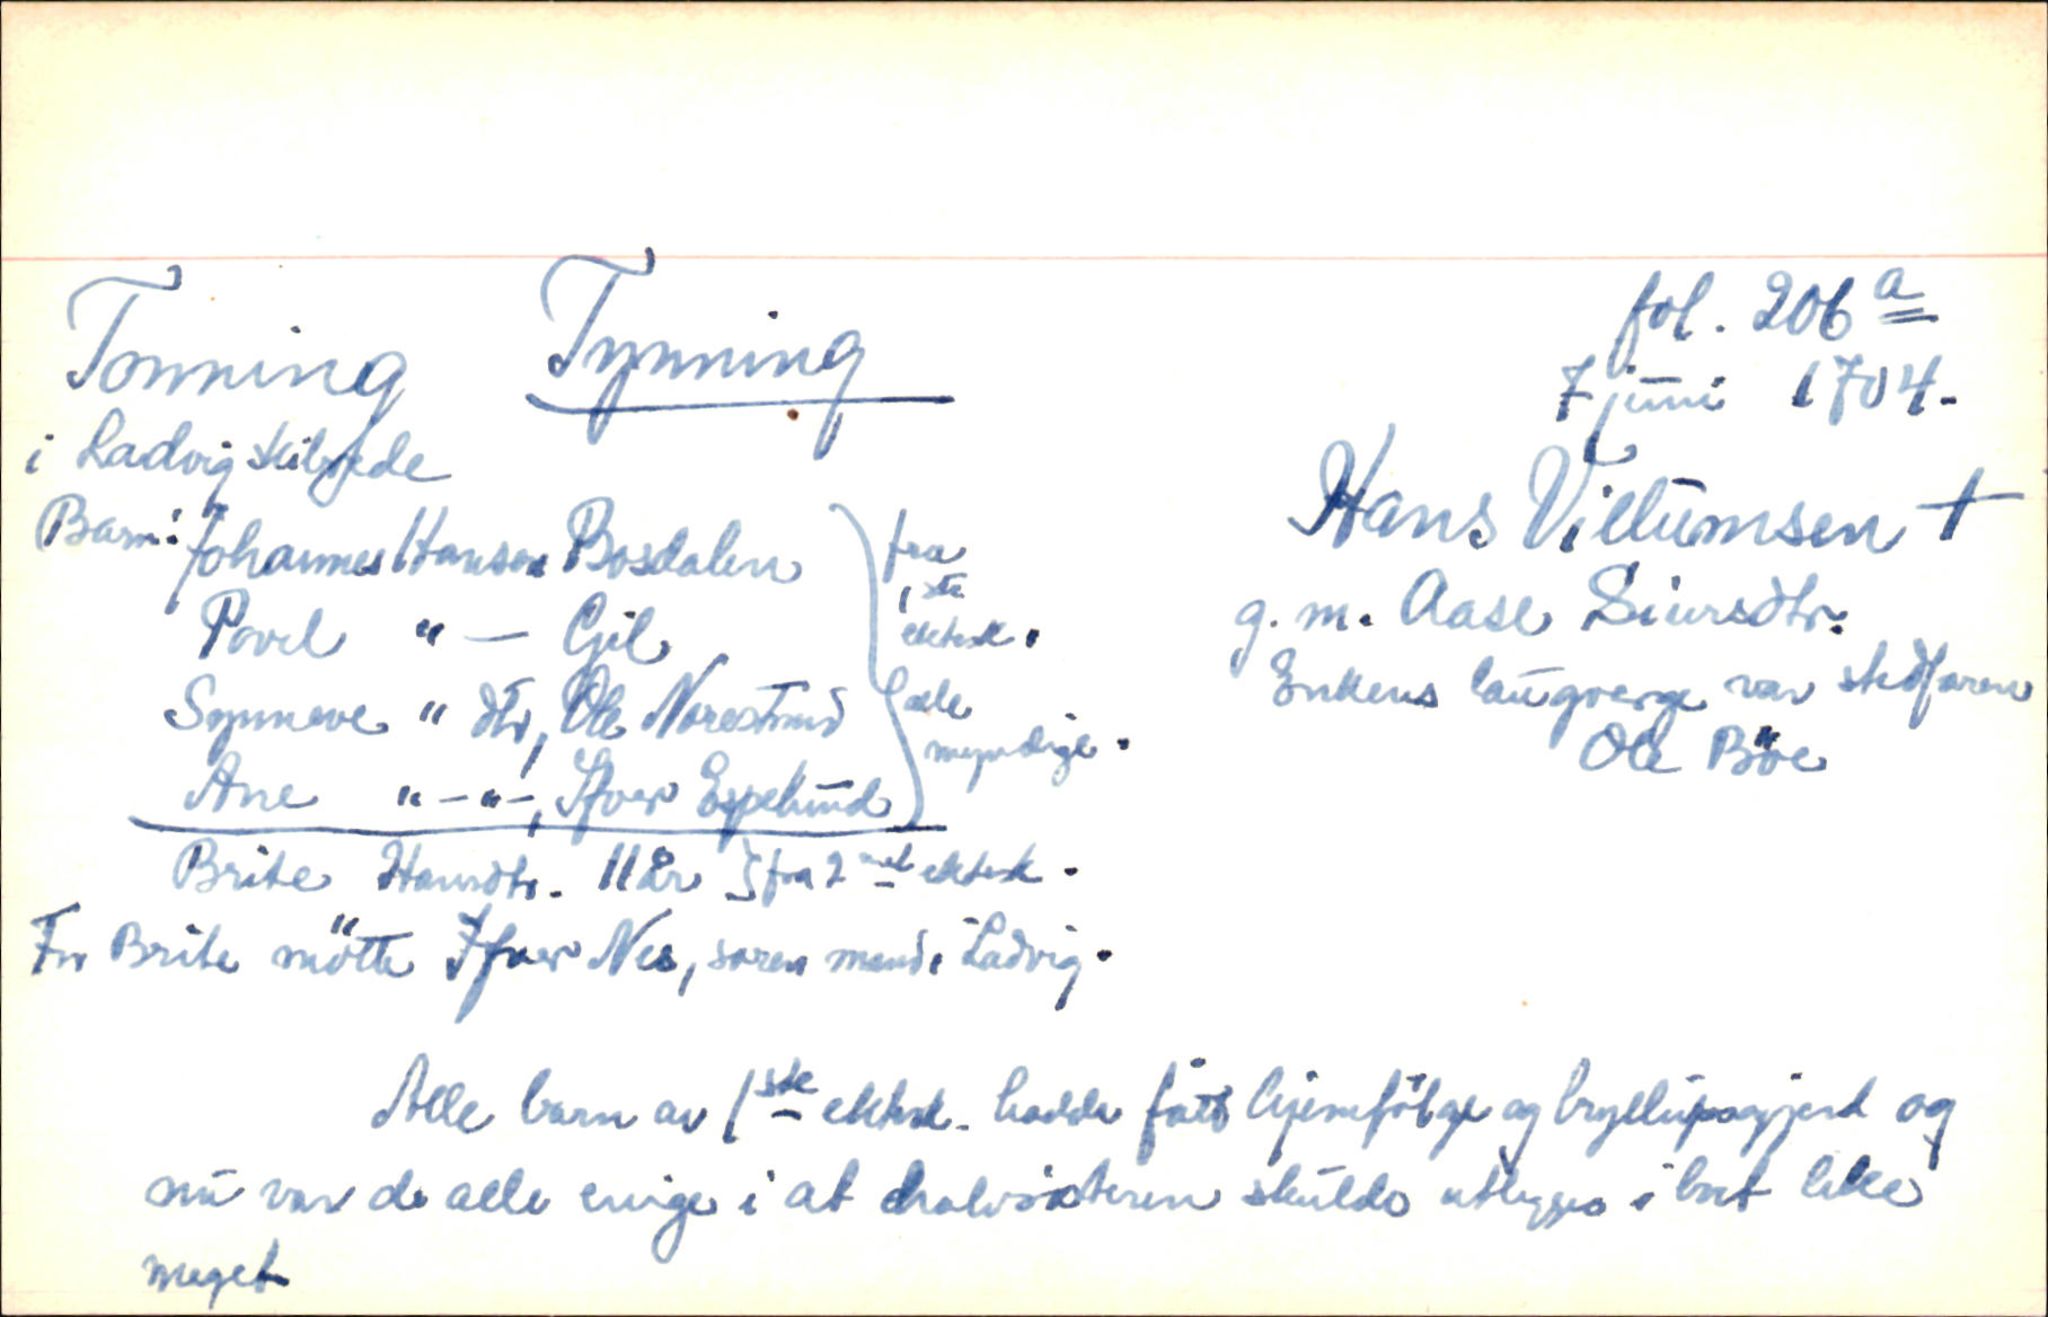 Tonning Tynning
i Ladvig skibrede
Barn: Johannes Hansen Bosdalen
Povel " — Gil
Synneve " dtr, Ole Norestrand
Ane " — " —, Ifver Espelund
fra 1ste ektesk.
alle myndige.
Brite Hansdtr. 11 år } fra 2net ektesk.
For Brite møtte Ifver Nes, soren mand i Ladvig.
fol. 206 a
7 juni 1704.
Hans Villumsen †
g. m. Aase Siursdtr.
Enkens laugverge var stedfaren
Ole Böe
Alle barn av 1ste ektesk. hadde fått hjemfölge og bryllupsgjerd og
nu var de alle enige i at halvsösteren skulde utlegges i bort like
meget